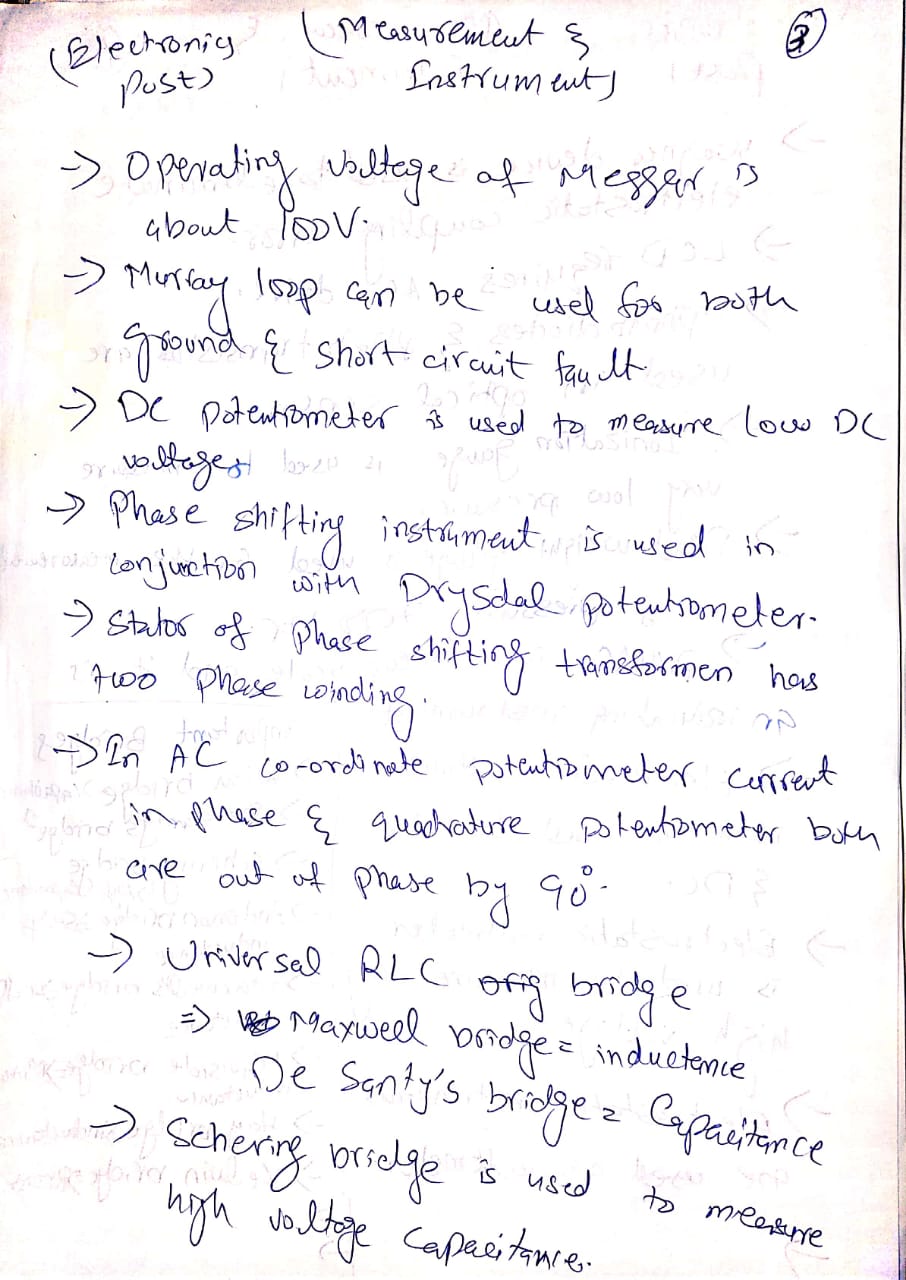 (Electronics (Measurement & ③
Post) Instruments
→ Operating voltage of Meggar is
about 100V.
→ Murray loop can be used for both
ground & short circuit fault
→ DC Potentiometer is used to measure low DC
voltages
→ Phase shifting instrument is used in
conjunction with Drysdal potentiometer.
→ Stator of Phase shifting transformer has
two phase winding.
→ In AC co-ordinate potentiometer current
in phase & quadrature potentiometer both
are out of phase by 90°.
→ Universal RLC bridge
⇒ Maxwell bridge = inductance
De Santy's bridge = Capacitance
→ Schering bridge is used to measure
high voltage capacitance.